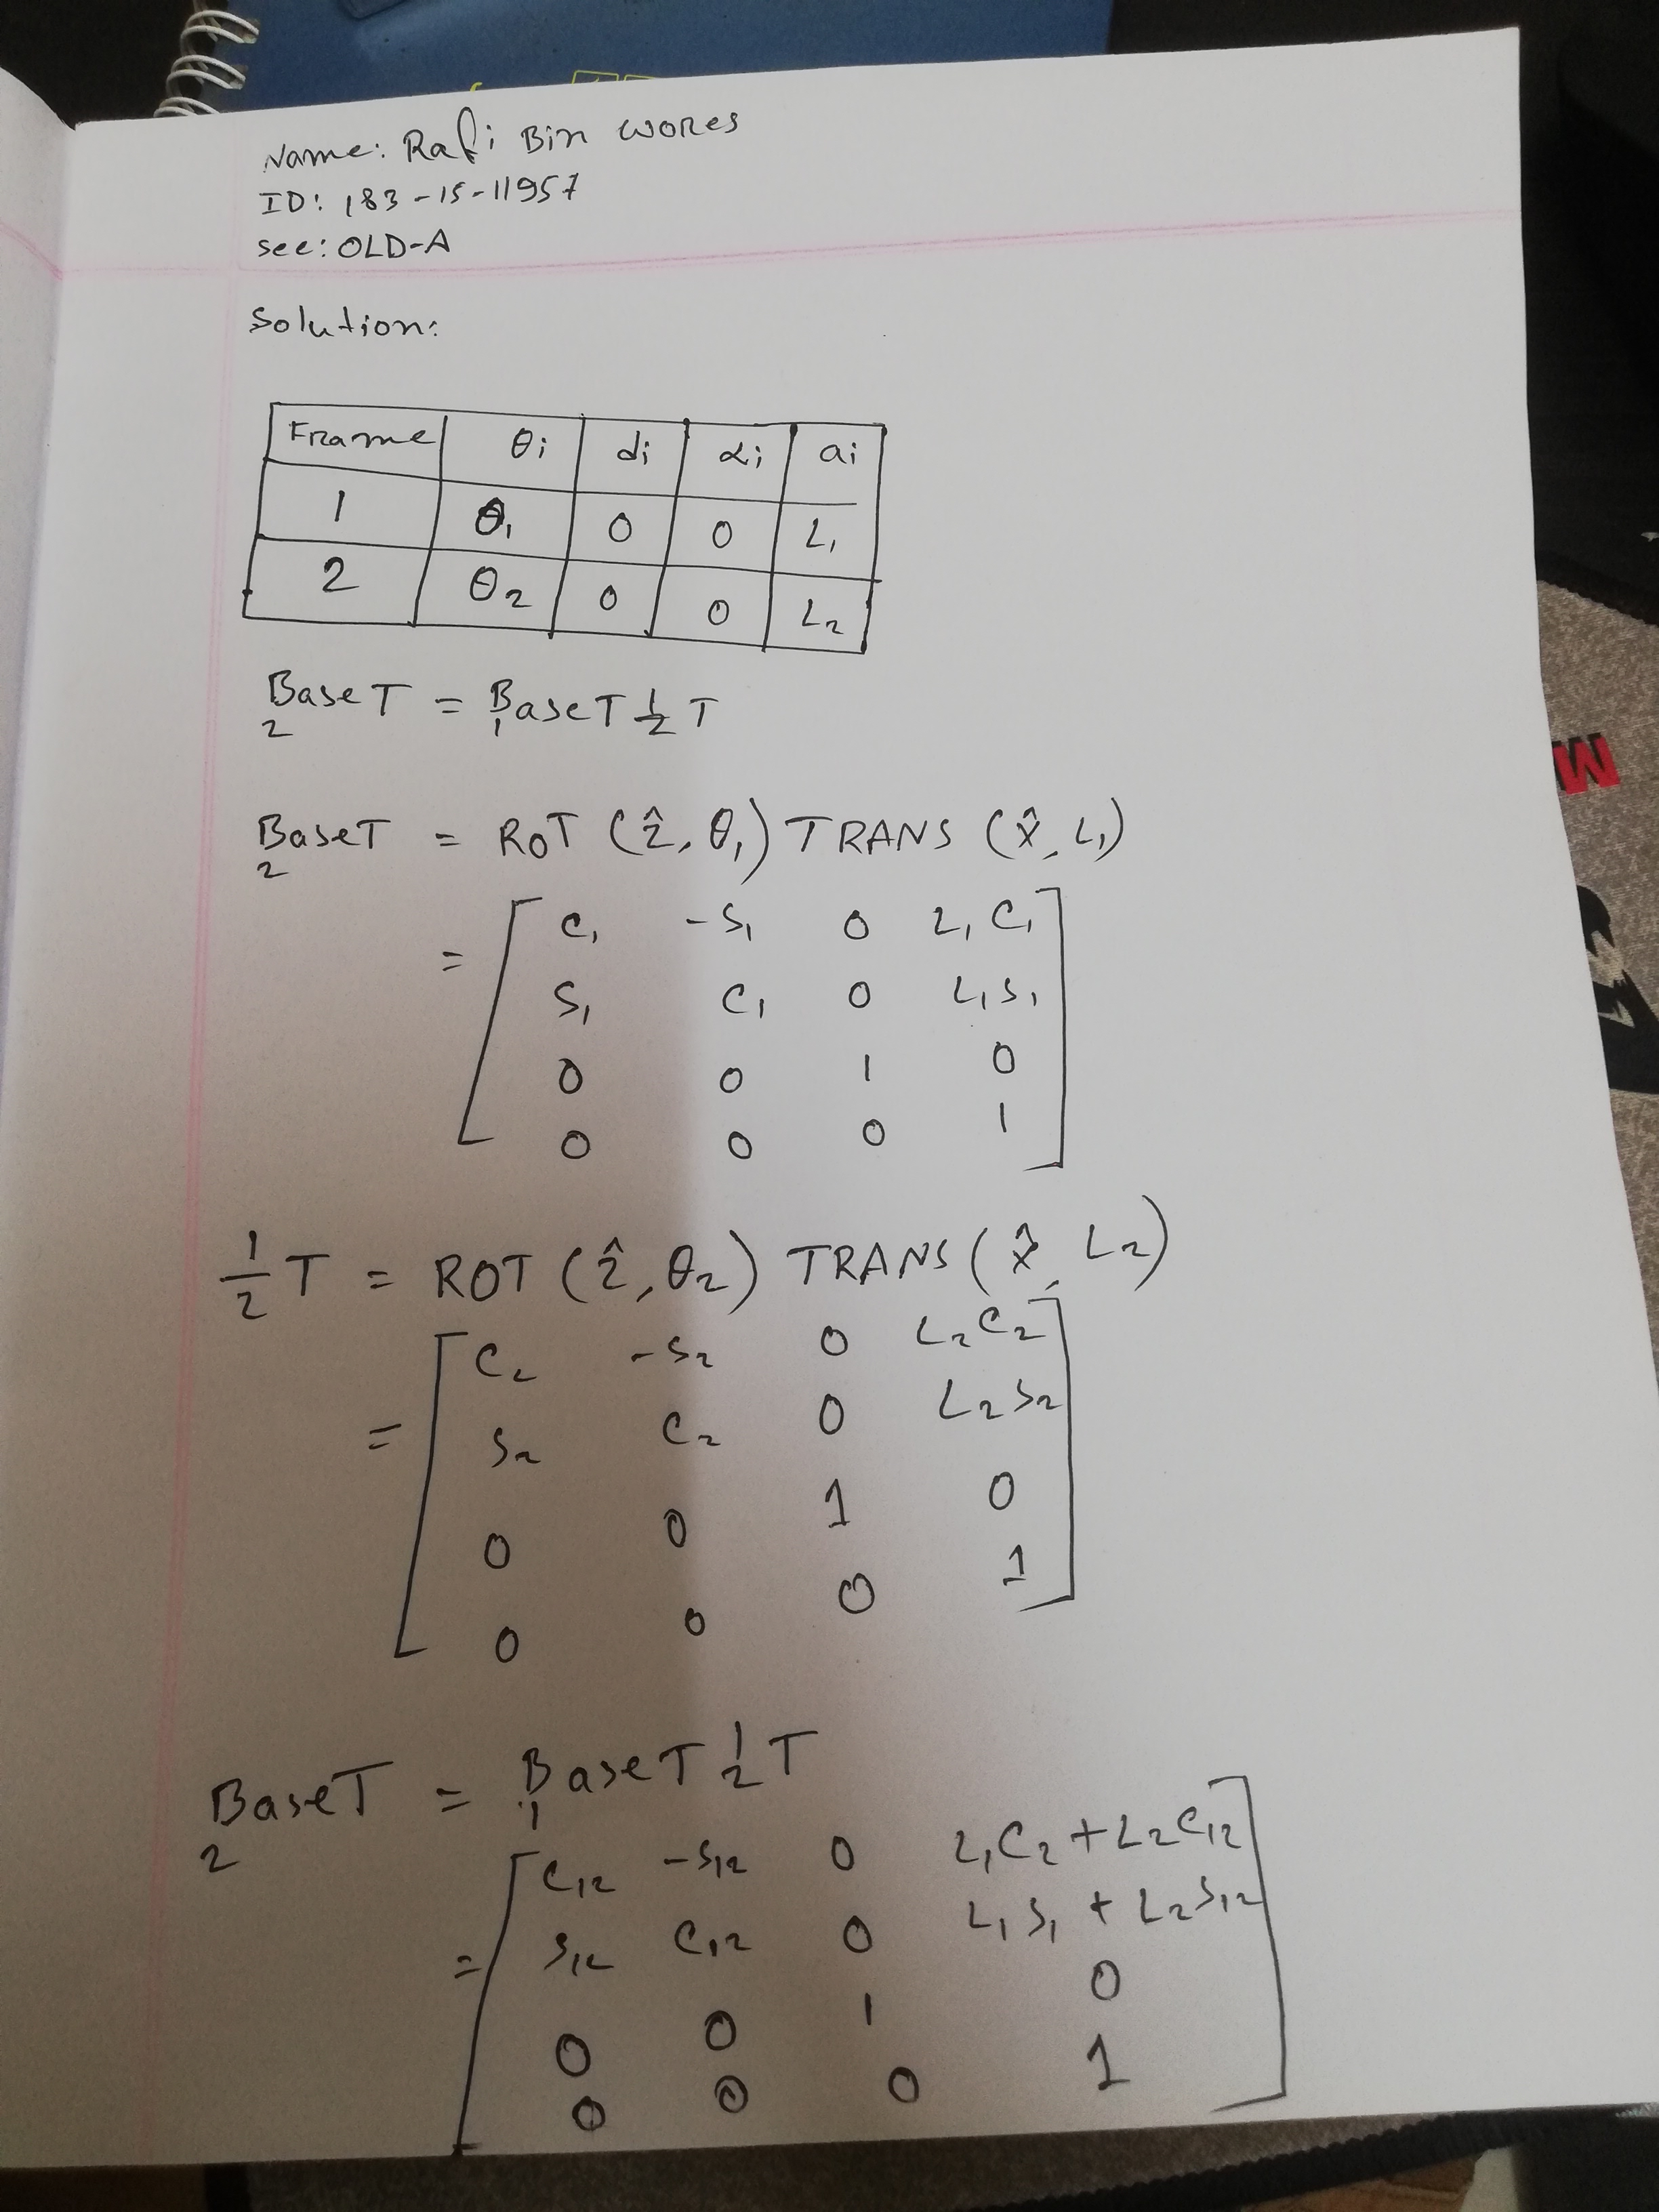 Name: Rafi Bin Wores
ID: 183-15-11957
sec: OLD-A
Solution:
Frame θi di αi ai
1 θ₁ 0 0 L₁
2 θ₂ 0 0 L₂
Base₂T = Base₁T ½ T
Base₂T = ROT (ẑ, θ₁) TRANS (x̂, L₁)
= [ C₁ -S₁ 0 L₁ C₁
S₁ C₁ 0 L₁S₁
0 0 1 0
0 0 0 1 ]
½ T = ROT (ẑ, θ₂) TRANS (x̂, L₂)
= [ C₂ -S₂ 0 L₂C₂
S₂ C₂ 0 L₂S₂
0 0 1 0
0 0 0 1 ]
Base₂T = Base₁T ½ T
= [ C₁₂ -S₁₂ 0 L₁C₂ + L₂C₁₂
S₁₂ C₁₂ 0 L₁S₁ + L₂S₁₂
0 0 1 0
0 0 0 1 ]